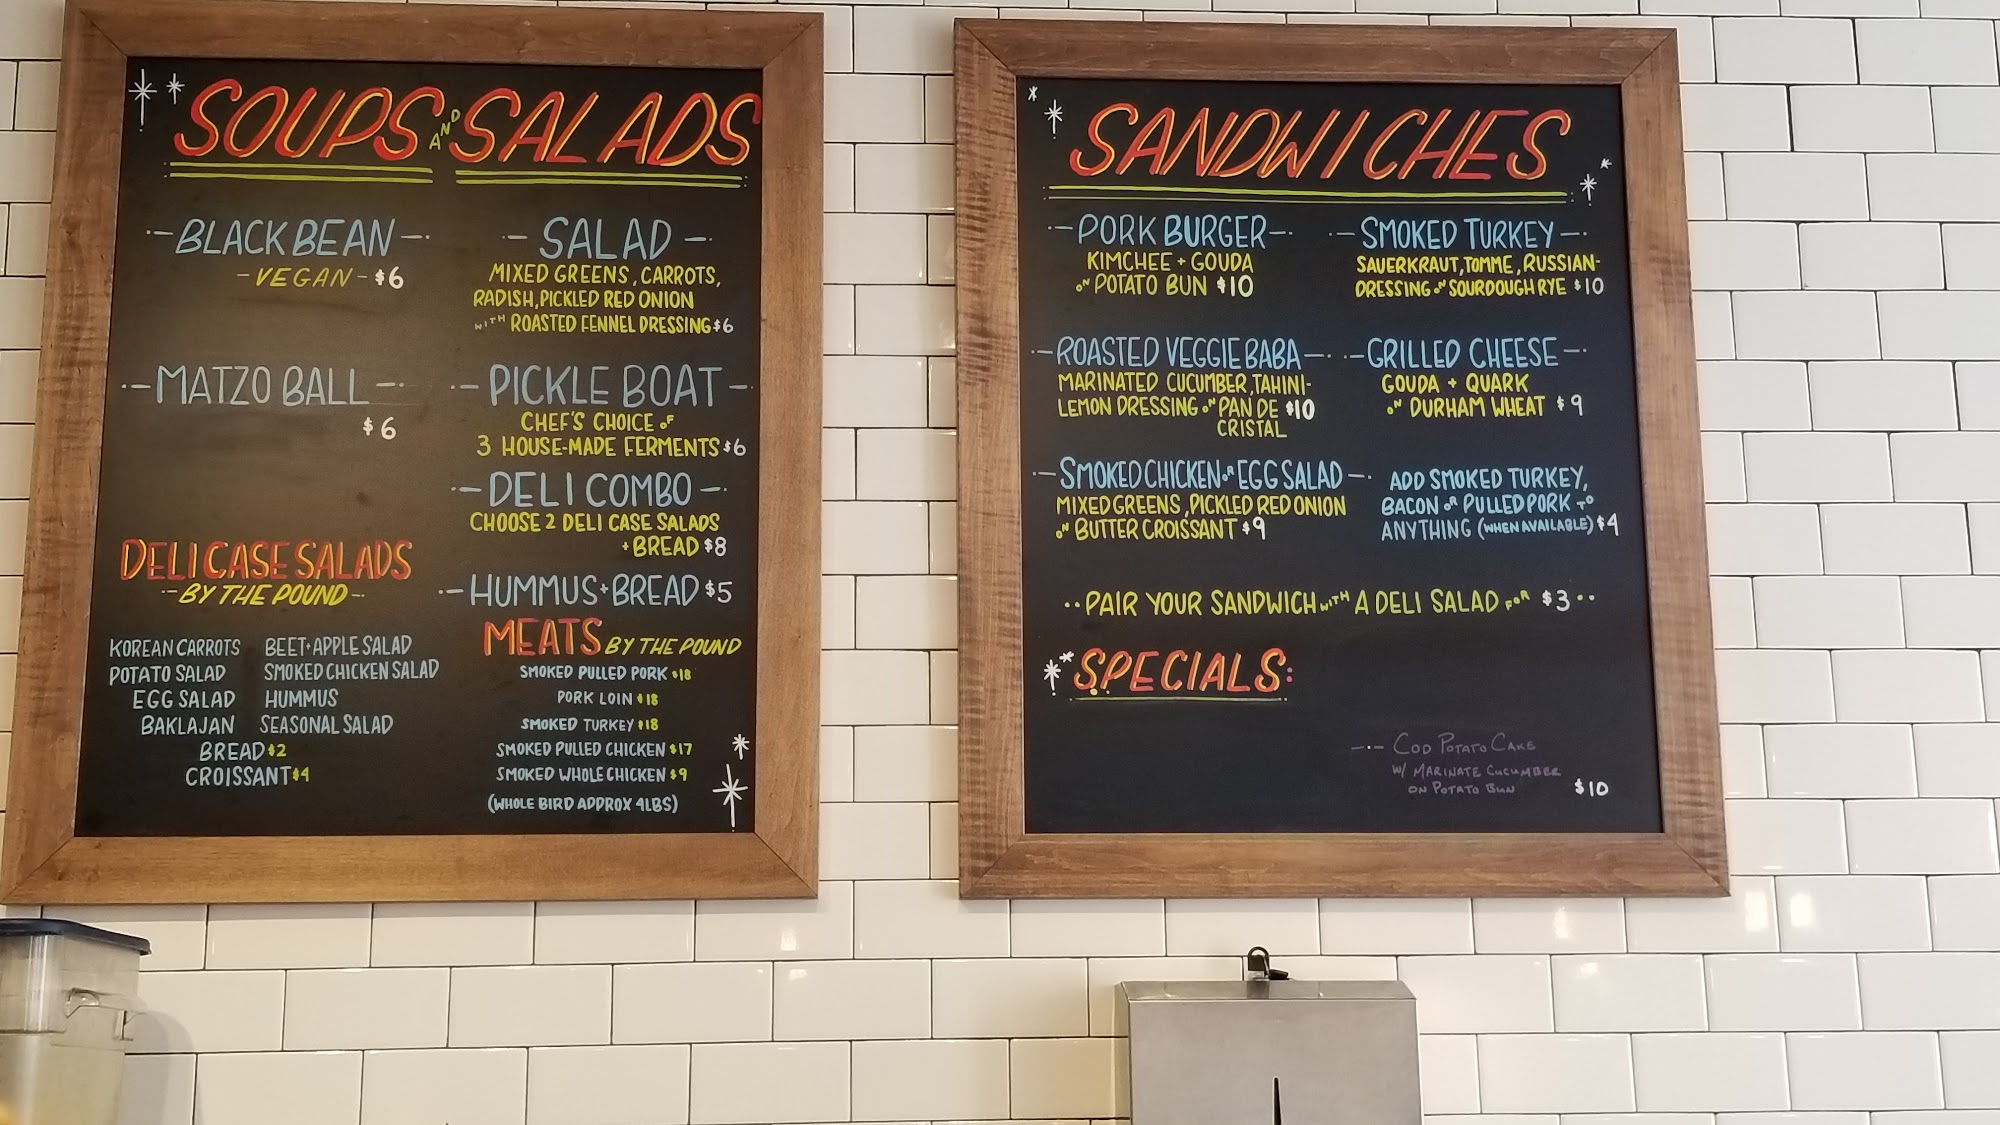 SOUPS AND SALADS
-BLACK BEAN-
-VEGAN- $6
-MATZO BALL-
$6
-SALAD-
MIXED GREENS, CARROTS,
RADISH, PICKLED RED ONION
WITH ROASTED FENNEL DRESSING $6
-PICKLE BOAT-
CHEF'S CHOICE OF
3 HOUSE-MADE FERMENTS $6
-DELI COMBO-
CHOOSE 2 DELI CASE SALADS
+ BREAD $8
-HUMMUS + BREAD $5
DELI CASE SALADS
-BY THE POUND-
KOREAN CARROTS
POTATO SALAD
EGG SALAD
BAKLAJAN
BEET + APPLE SALAD
SMOKED CHICKEN SALAD
HUMMUS
SEASONAL SALAD
BREAD $2
CROISSANT $4
MEATS BY THE POUND
SMOKED PULLED PORK $18
PORK LOIN $18
SMOKED TURKEY $18
SMOKED PULLED CHICKEN $17
SMOKED WHOLE CHICKEN $9
(WHOLE BIRD APPROX 4LBS)
SANDWICHES
-PORK BURGER-
KIMCHEE + GOUDA
ON POTATO BUN $10
-SMOKED TURKEY-
SAUERKRAUT, TOMME, RUSSIAN-
DRESSING ON SOURDOUGH RYE $10
-ROASTED VEGGIE BABA-
MARINATED CUCUMBER, TAHINI-
LEMON DRESSING ON PAN DE $10
CRISTAL
-GRILLED CHEESE-
GOUDA + QUARK
ON DURHAM WHEAT $9
-SMOKED CHICKEN OR EGG SALAD-
MIXED GREENS, PICKLED RED ONION
ON BUTTER CROISSANT $9
ADD SMOKED TURKEY,
BACON OR PULLED PORK TO
ANYTHING (WHEN AVAILABLE) $4
··PAIR YOUR SANDWICH WITH A DELI SALAD FOR $3··
SPECIALS:
-·- COD POTATO CAKE
W/ MARINATE CUCUMBER
ON POTATO BUN $10